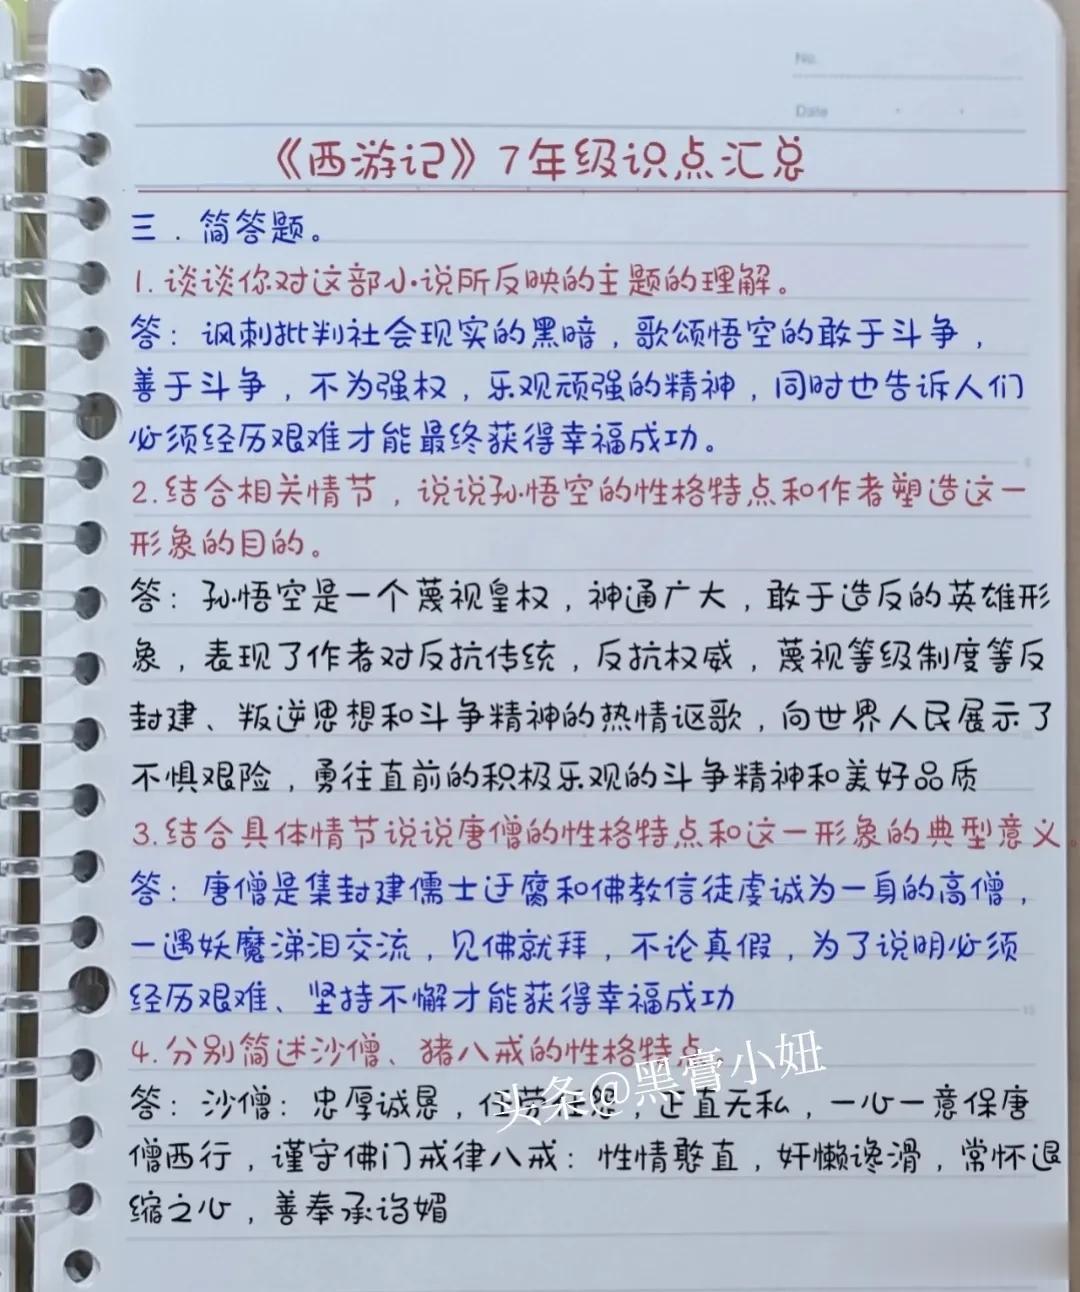 No.
Date
《西游记》7年级识点汇总
三．简答题。
1.谈谈你对这部小说所反映的主题的理解。
答：讽刺批判社会现实的黑暗，歌颂悟空的敢于斗争，
善于斗争，不为强权，乐观顽强的精神，同时也告诉人们
必须经历艰难才能最终获得幸福成功。
2.结合相关情节，说说孙悟空的性格特点和作者塑造这一
形象的目的。
答：孙悟空是一个蔑视皇权，神通广大，敢于造反的英雄形
象，表现了作者对反抗传统，反抗权威，蔑视等级制度等反
封建、叛逆思想和斗争精神的热情讴歌，向世界人民展示了
不惧艰险，勇往直前的积极乐观的斗争精神和美好品质
3.结合具体情节说说唐僧的性格特点和这一形象的典型意义。
答：唐僧是集封建儒士迂腐和佛教信徒虔诚为一身的高僧，
一遇妖魔涕泪交流，见佛就拜，不论真假，为了说明必须
经历艰难、坚持不懈才能获得幸福成功
4.分别简述沙僧、猪八戒的性格特点。
答：沙僧：忠厚诚恳，任劳任怨，正直无私，一心一意保唐
僧西行，谨守佛门戒律八戒：性情憨直，奸懒谗滑，常怀退
缩之心，善奉承诌媚
头条@黑膏小妞